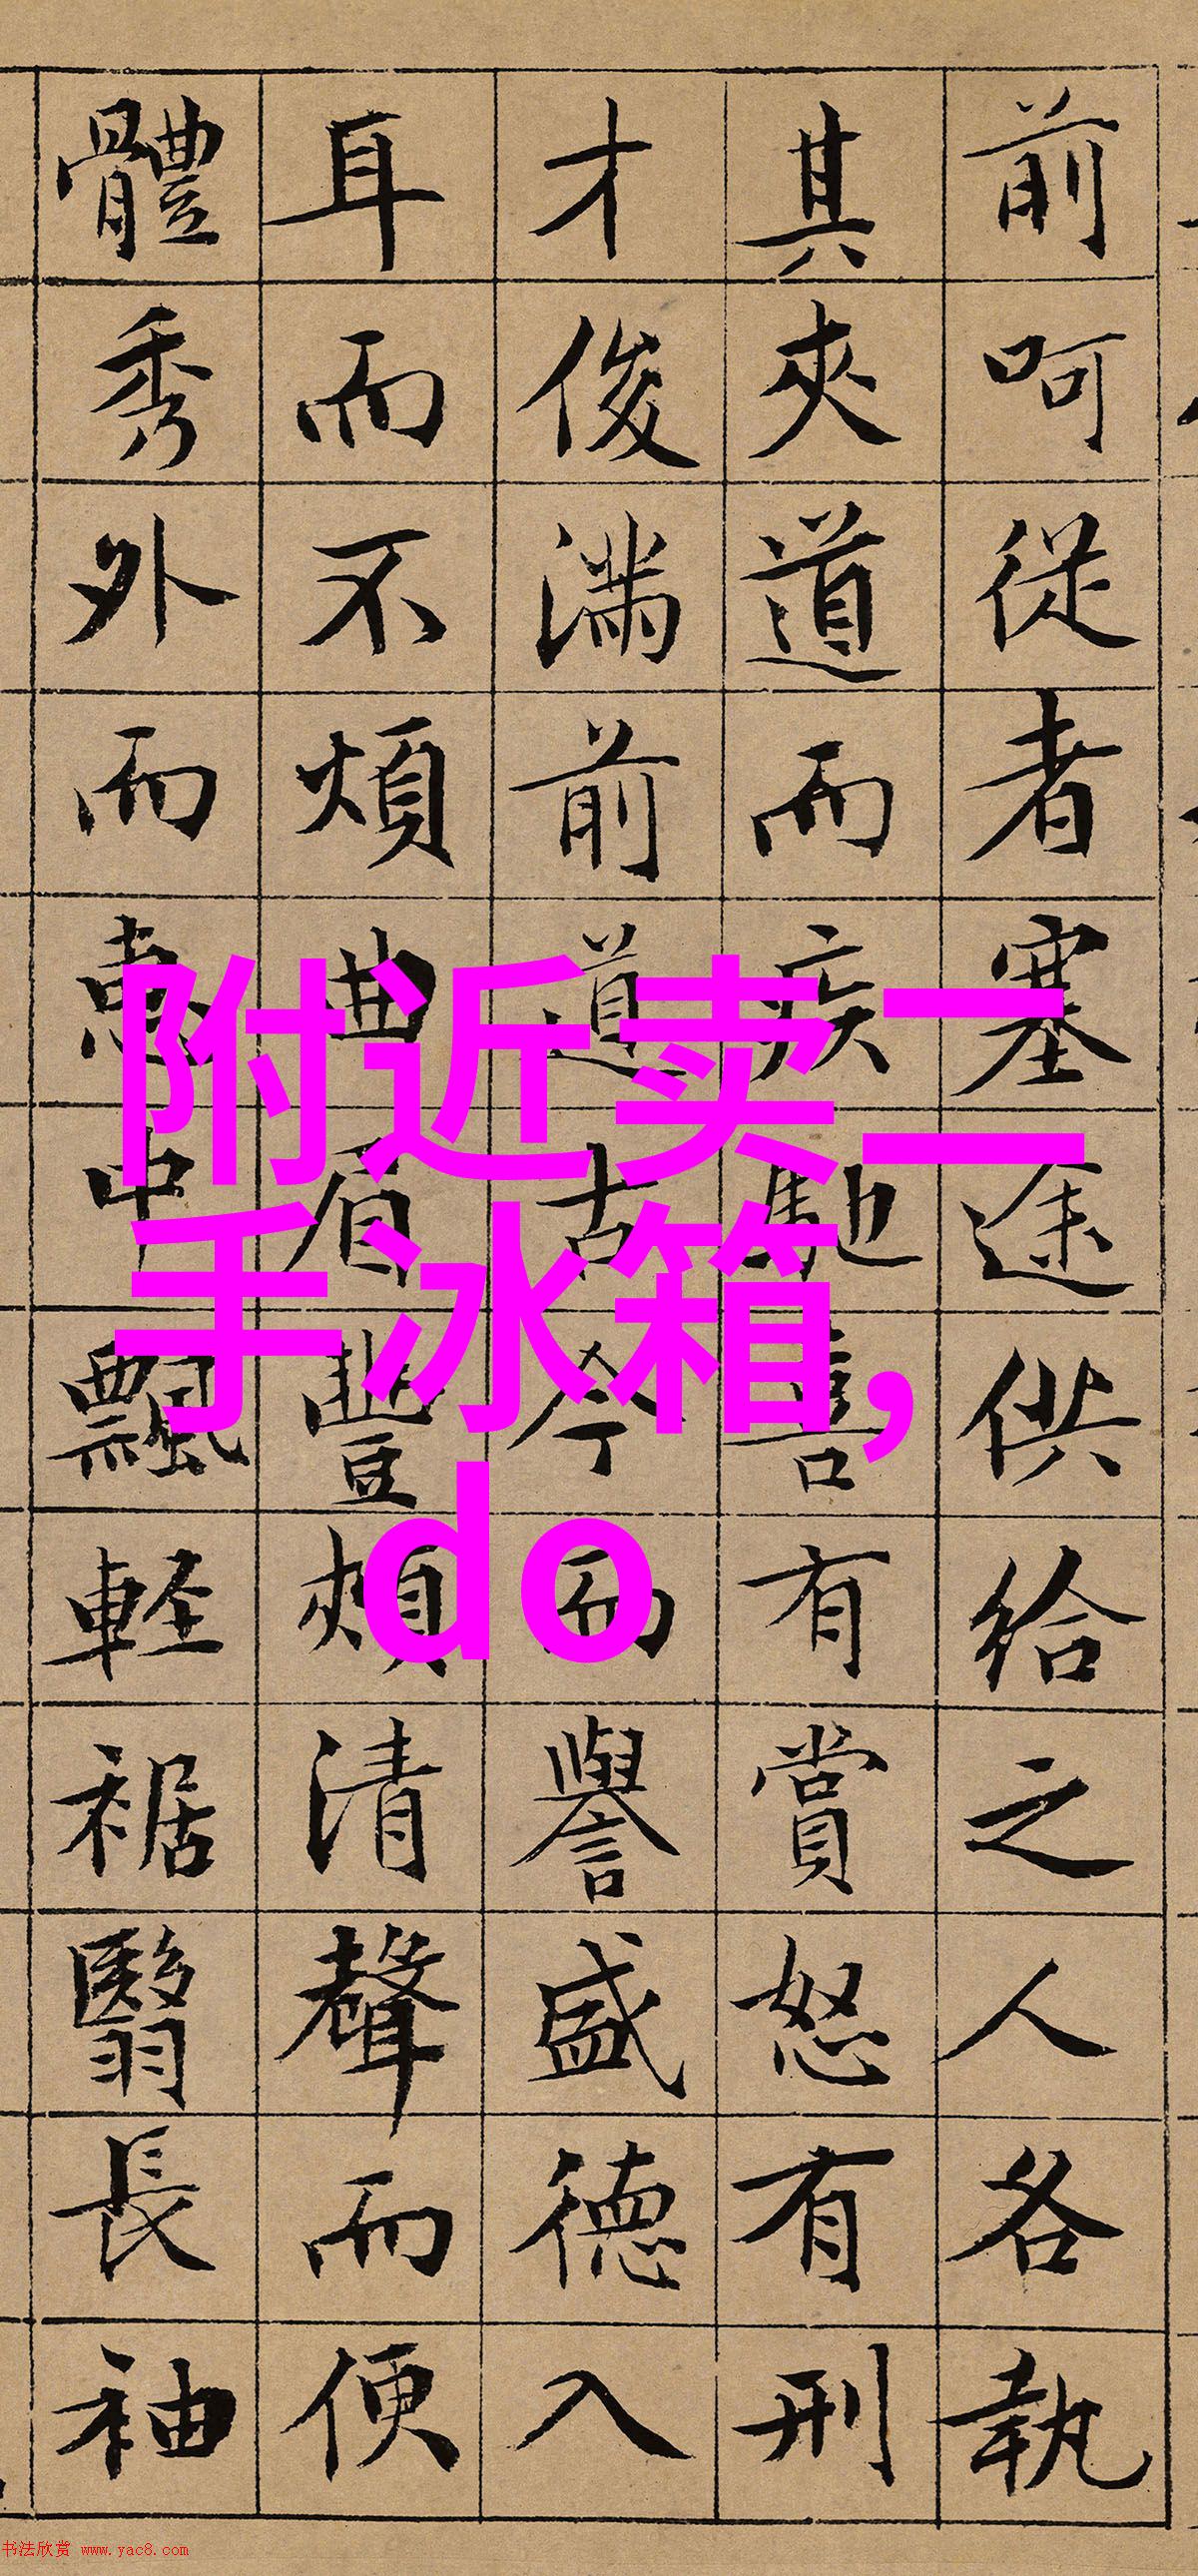 前呵從者塞途供給之人各執
其夾道而疾馳喜有賞怒有刑
才俊滿前道古今而譽盛德入
耳而不煩曲眉豐頰清聲而便
體秀外而惠中飄軽裾翳長袖
附近卖二
手冰箱,
do
书法欣赏 www.yac8.com